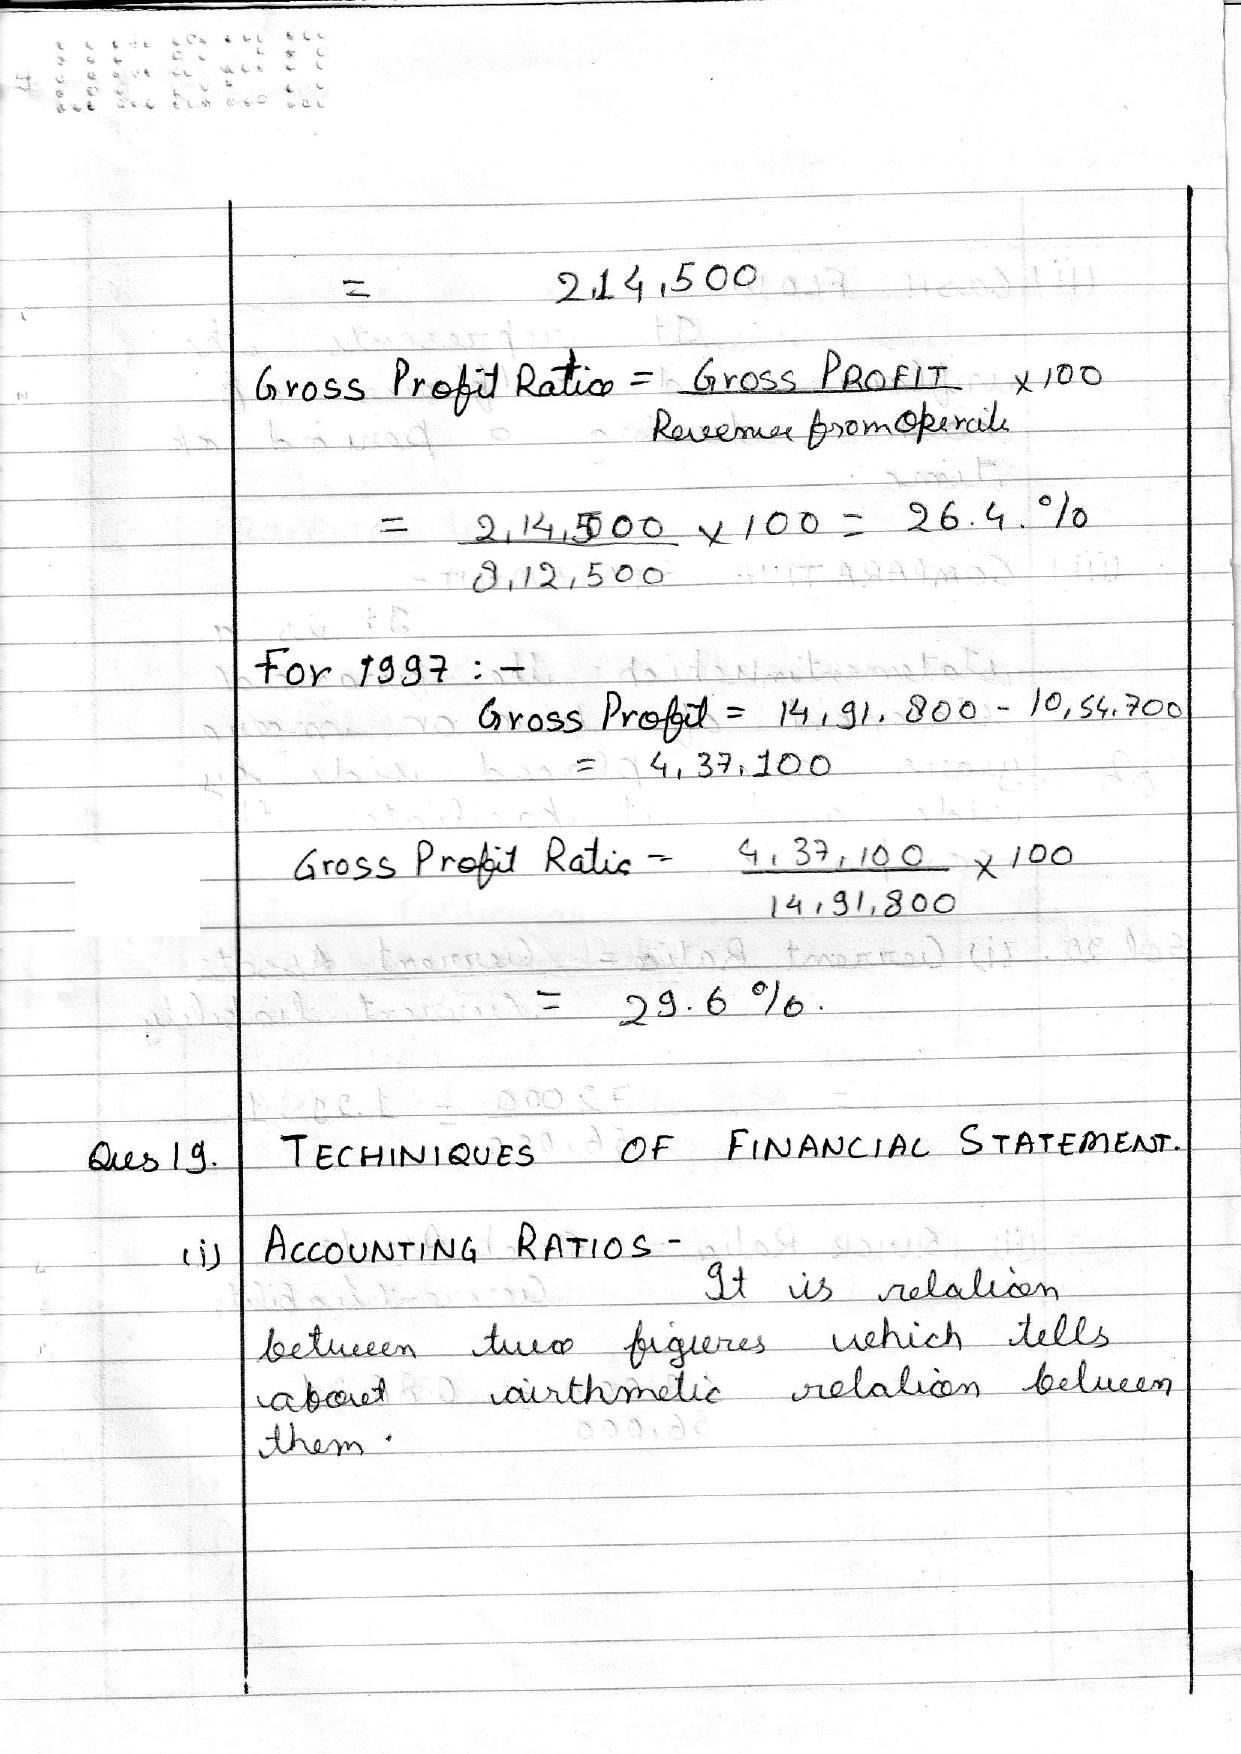 = 2,14,500
Gross Profit Ratio = Gross PROFIT × 100
Revenue from Operati
= 2,14,500 × 100 = 26.4.%
8,12,500
For 1997 :-
Gross Profit = 14,91,800 - 10,54,700
= 4,37,100
Gross Profit Ratio - 4,37,100 × 100
14,91,800
= 29.6%.
Ques 19. TECHINIQUES OF FINANCIAL STATEMENT.
(i) ACCOUNTING RATIOS -
It is relation
between two figures which tells
about airthmetic relation between
them.